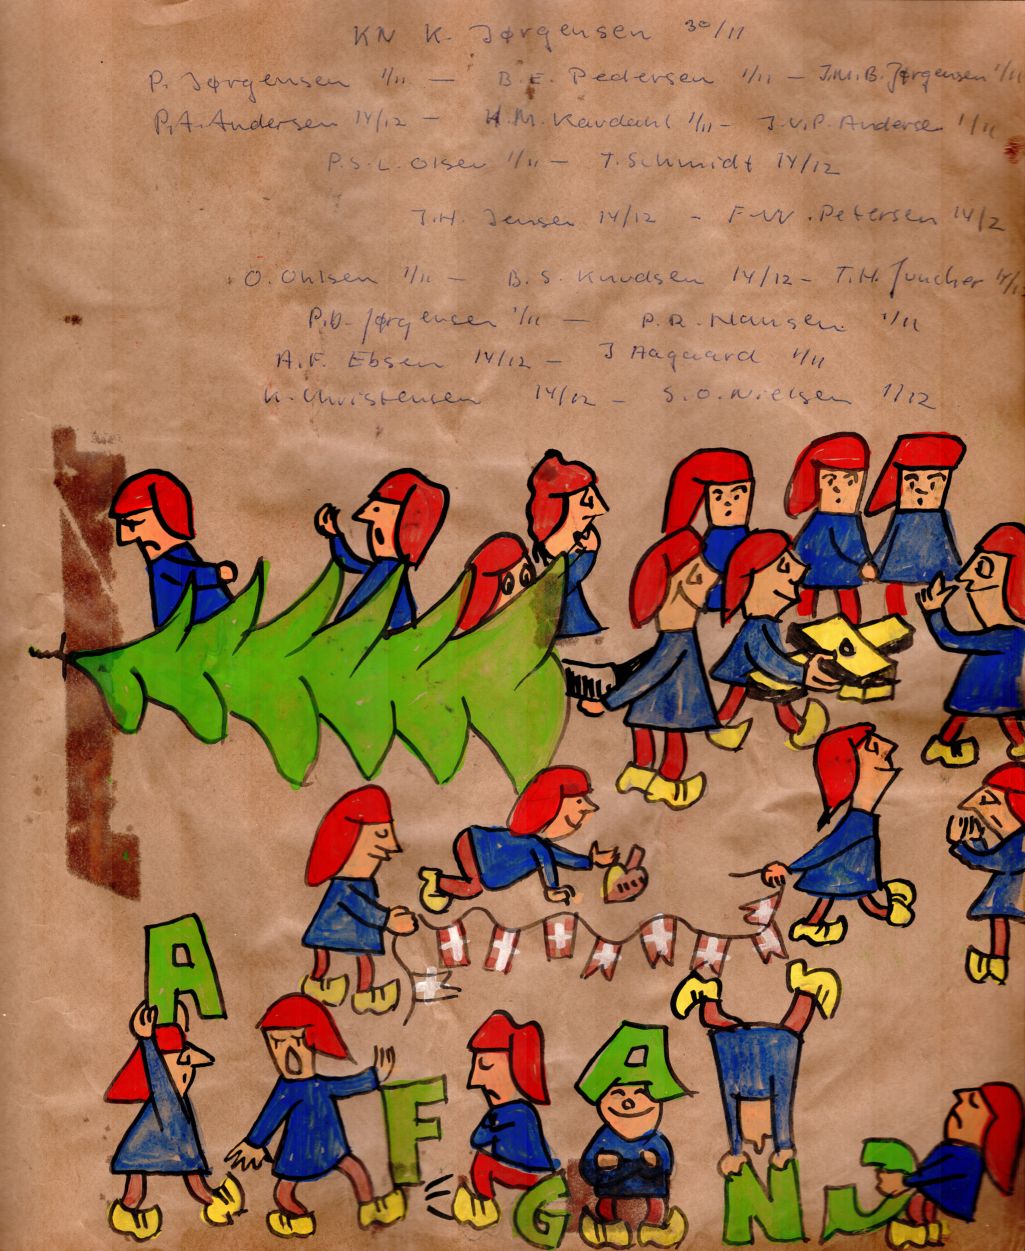 KN K. Jørgensen 30/11
P. Jørgensen 1/11 — B.E. Pedersen 1/11 — J.M.B. Jørgensen 1/11
P.A. Andersen 14/12 — H.M. Kavdahl 1/11 — J.V.P. Andersen 1/11
P.S.L. Olsen 1/11 — T. Schmidt 14/12
J.H. Jensen 14/12 - F.W. Petersen 14/2
O. Ohlsen 1/11 — B.S. Knudsen 14/12 - T.H. Juncher
P.D. Jørgensen 1/11 — P.R. Hansen 1/11
A.F. Ebsen 14/12 — J Aagaard 1/11
K. Christensen 14/12 — S.O. Nielsen 1/12
A F G A N J